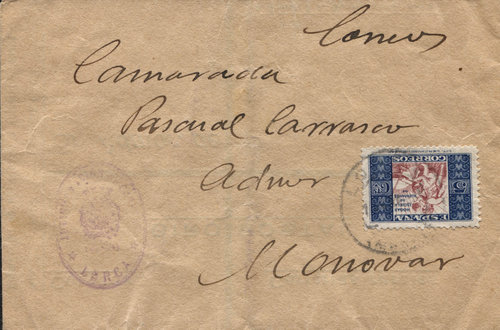 Correos
Camarada
Pascual Carrasco
Admor
Monovar
ESPAÑA
CORREOS
LORCA